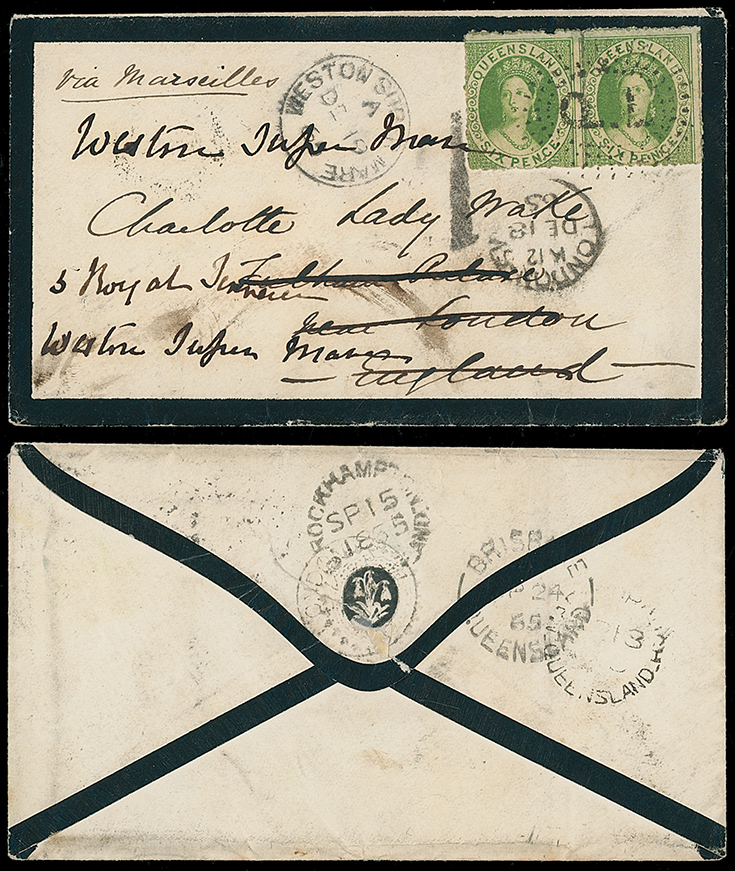 via Marseilles
WESTON SUPER MARE
A
QUEENSLAND
SIX PENCE
QUEENSLAND
SIX PENCE
QL
1
Weston Super Mare
Charlotte Lady Wake
LONDON
M 12
DE 18
65
5 Royal
Fulham Palace
near London
Weston Super Mare
England
ROCKHAMPTON
SP 15
1865
BRISBANE
24
65
QUEENSLAND
QUEENSLAND